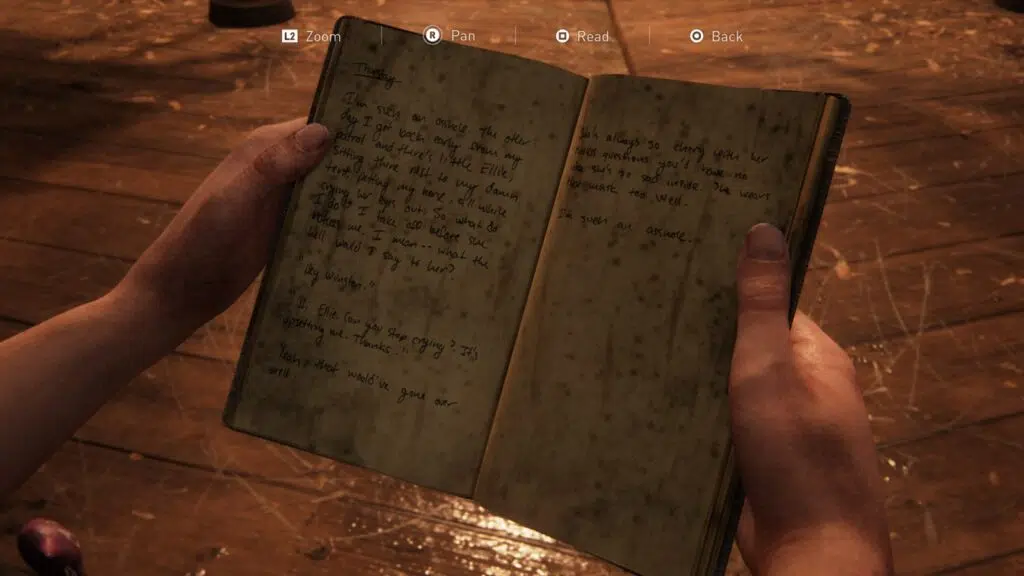 L2 Zoom
R Pan
Read
Back
Thursday
I'm such an asshole. The other
day I get back early from my
patrol and there's little Ellie,
sitting there next to my damn
tent, petting my horse, all while
crying her eyes out. So what do
I do? I take off before she
notices me. I mean-- what the
hell would I say to her?
"Hey Winston."
"Ellie. Can you stop crying? It's
upsetting me. Thanks."
Yeah, that would've gone over
well.
She's always so cheery with her
questions, you'd have no
she's so sad inside. She wears
mask too well.
I'm such an asshole.